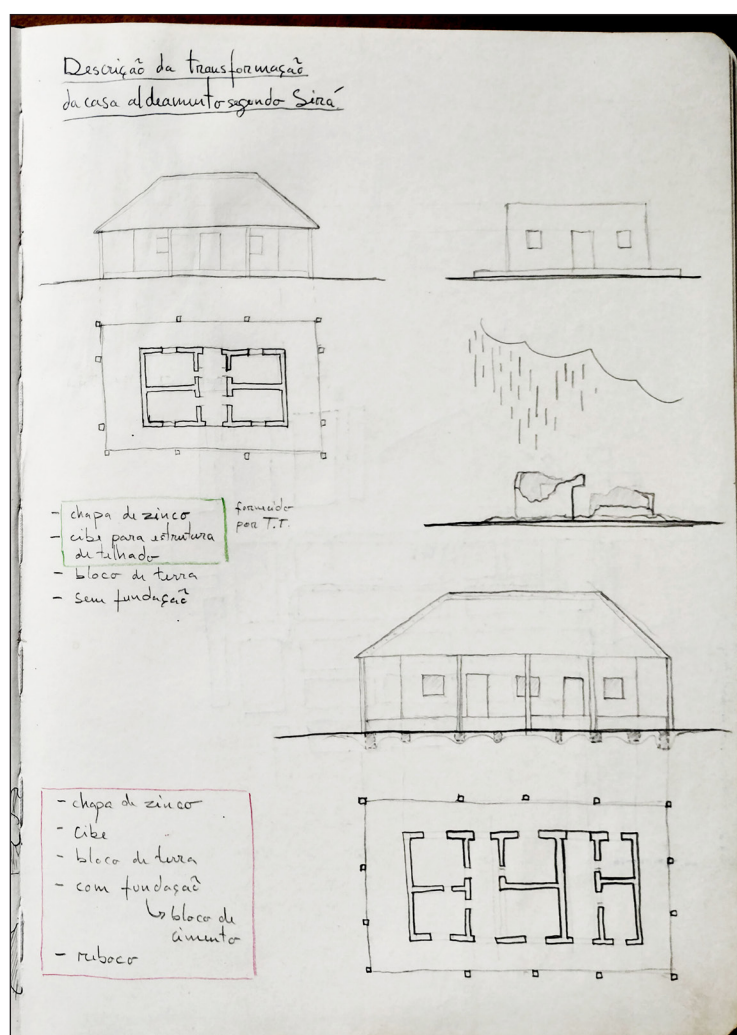 Descrição da transformação
da casa aldeamento segundo Sirá
- chapa de zinco
- cibe para estrutura
de telhado
- bloco de terra
- sem fundação
fornecido
por T.T.
- chapa de zinco
- cibe
- bloco de terra
- com fundação
↳ bloco de
cimento
- reboco